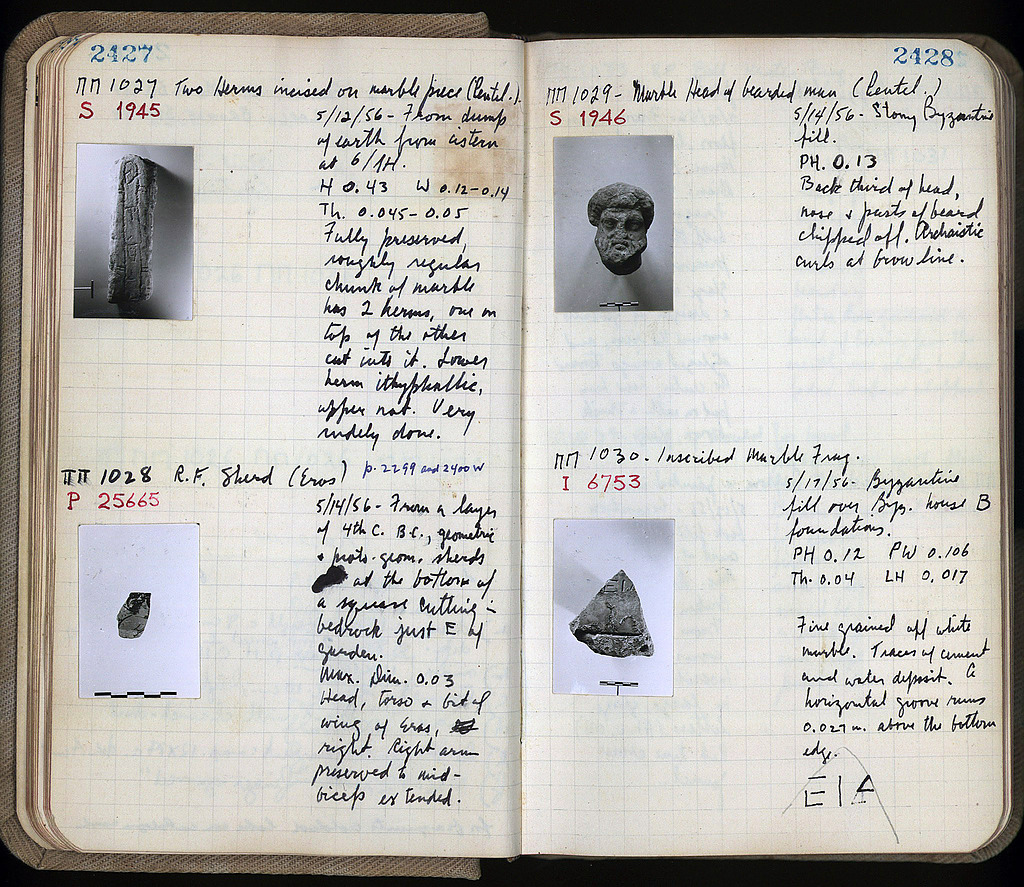 2427
ΠΠ 1027 Two Herms incised on marble piece (Pentel.).
S 1945
5/12/56 - From dump
of earth from cistern
at 6/ΙΗ.
H 0.43 W 0.12-0.14
Th. 0.045-0.05
Fully preserved,
roughly regular
chunk of marble
has 2 herms, one on
top of the other
cut into it. Lower
herm ithyphallic,
upper not. Very
rudely done.
ΠΠ 1028 R.F. Sherd (Eros) p. 2299 and 2400 W
P 25665
5/14/56 - From a layer
of 4th C. B.C., geometric
+ proto-geom. sherds
at the bottom of
a square cutting in
bedrock just E of
garden.
Max. Dim. 0.03
Head, torso + bit of
wing of Eros,
right. Right arm
preserved to mid-
biceps extended.
2428
ΠΠ 1029 - Marble Head of bearded man (Pentel.)
S 1946
5/14/56 - Stony Byzantine
fill.
PH. 0.13
Back third of head,
nose + parts of beard
chipped off. Archaistic
curls at brow line.
ΠΠ 1030 - Inscribed Marble Frag.
I 6753
5/17/56 - Byzantine
fill over Byz. house B
foundations.
PH 0.12 PW 0.106
Th. 0.04 LH 0.017
Fine grained off white
marble. Traces of cement
and water deposit. A
horizontal groove runs
0.027 m. above the bottom
edge.